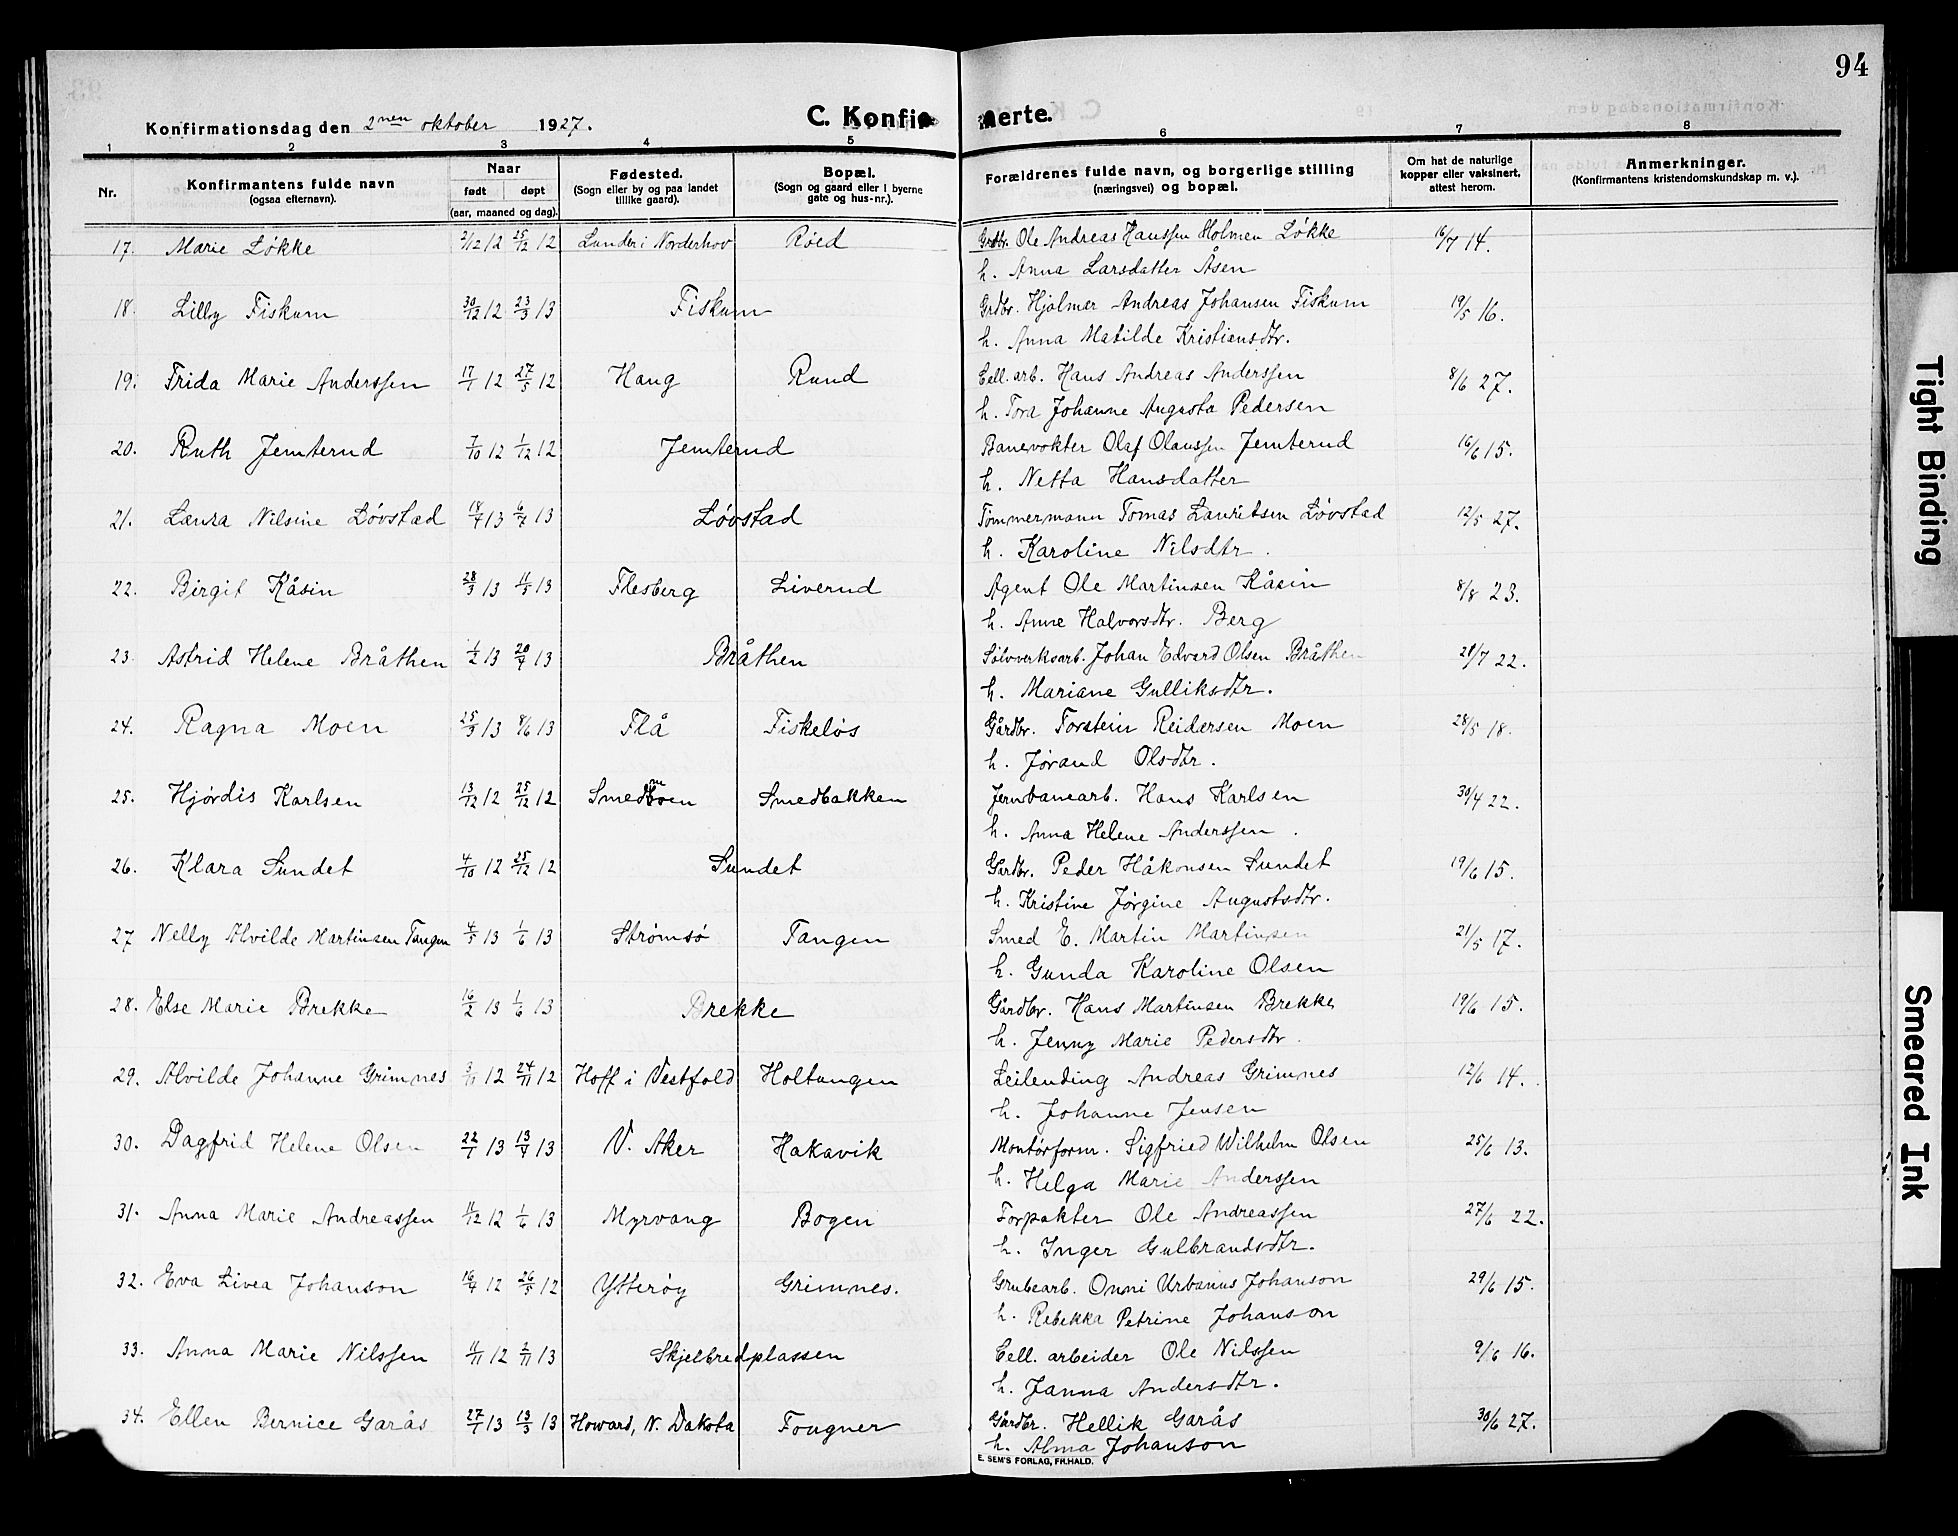 94
Konfirmationsdag den 2nen oktober 1927.
C. Konfir merte.
1 2 3 4 5 6 7 8
Nr.
Konfirmantens fulde navn
(ogsaa efternavn).
Naar
født døpt
(aar, maaned og dag).
Fødested.
(Sogn eller by og paa landet
tillike gaard).
Bopæl.
(Sogn og gaard eller i byerne
gate og hus-nr.).
Forældrenes fulde navn, og borgerlige stilling
(næringsvei) og bopæl.
Om hat de naturlige
kopper eller vaksinert,
attest herom.
Anmerkninger.
(Konfirmantens kristendomskundskap m. v.).
17. Marie Løkke 2/12 12 25/12 12 Lunder i Norderhov Røed Grdbr. Ole Andreas Hanssen Holmen Løkke 16/7 14.
h. Anna Larsdatter Åsen
18. Lilly Fiskum 30/12 12 23/3 13 Fiskum Grdbr. Hjalmar Andreas Johansen Fiskum 19/5 16.
h. Anna Matilde Kristiansdtr.
19. Frida Marie Anderssen 17/1 12 27/5 12 Haug Rund Cell. arb. Hans Andreas Anderssen 8/6 27.
h. Tora Johanne Augusta Pedersen
20. Ruth Jemterud 7/10 12 1/12 12 Jemterud Banevokter Olaf Olaussen Jemterud 16/6 15.
h. Netta Hansdatter
21. Laura Nilsine Løvstad 18/4 13 6/7 13 Løvstad Tømmermann Tomas Lauritsen Løvstad 12/5 27.
h. Karoline Nilsdtr.
22. Birgit Kåsin 28/3 13 11/5 13 Flesberg Liverud Agent Ole Martinsen Kåsin 8/8 23.
h. Anne Halvorsdtr. Berg
23. Astrid Helene Bråthen 1/2 13 20/4 13 Bråthen Sølvverksarb. Johan Edvard Olsen Bråthen 28/7 22.
h. Mariane Gulliksdtr.
24. Ragna Moen 25/3 13 8/6 13 Flå Fiskeløs Gårdbr. Torstein Reidarsen Moen 28/5 18.
h. Jørand Olsdtr.
25. Hjørdis Karlsen 13/12 12 25/12 12 Smedmoen Smedbakken Jernbanearb. Hans Karlsen 30/4 22.
h. Anna Helene Anderssen.
26. Klara Sundet 4/10 12 25/12 12 Sundet Gårdbr. Peder Håkonsen Sundet 19/6 15.
h. Kristine Jørgine Augustsdtr.
27 Nelly Alvilde Martinsen Tangen 4/5 13 1/6 13 Strømsø Tangen Smed E. Martin Martinsen 21/5 17.
h. Gunda Karoline Olsen
28. Else Marie Brekke 16/2 13 1/6 13 Brekke Gårdbr. Hans Martinsen Brekke 19/6 15.
h. Jenny Marie Pedersdtr.
29. Alvilde Johanne Grimnes 3/11 12 24/11 12 Hoff i Vestfold Holtungen Leilending Andreas Grimnes 12/6 14.
h. Johanne Jensen
30. Dagfrid Helene Olsen 22/1 13 13/4 13 V. Aker Hakavik Montørform. Sigfried Wilhelm Olsen 25/6 13.
h. Helga Marie Anderssen
31. Anna Marie Andreassen 11/12 12 1/6 13 Myrvang Bogen Forpakter Ole Andreassen 27/6 22.
h. Inger Gulbrandsdtr.
32. Eva Livea Johanson 16/4 12 26/5 12 Ytterøy Grimnes. Grubearb. Onni Urbanus Johanson 29/6 15.
h. Rebekka Petrine Johanson
33. Anna Marie Nilssen 11/11 12 2/11 13 Skjelbredplassen Cell. arbeider Ole Nilssen 9/6 16.
h. Janna Andersdtr.
34. Ellen Bernice Garås 27/1 13 13/3 13 Howard, N. Dakota Fougner Gårdbr. Hellik Garås 30/6 27.
h. Alma Johanson
E. SEM'S FORLAG, FR.HALD.
Tight Binding
Smeared Ink